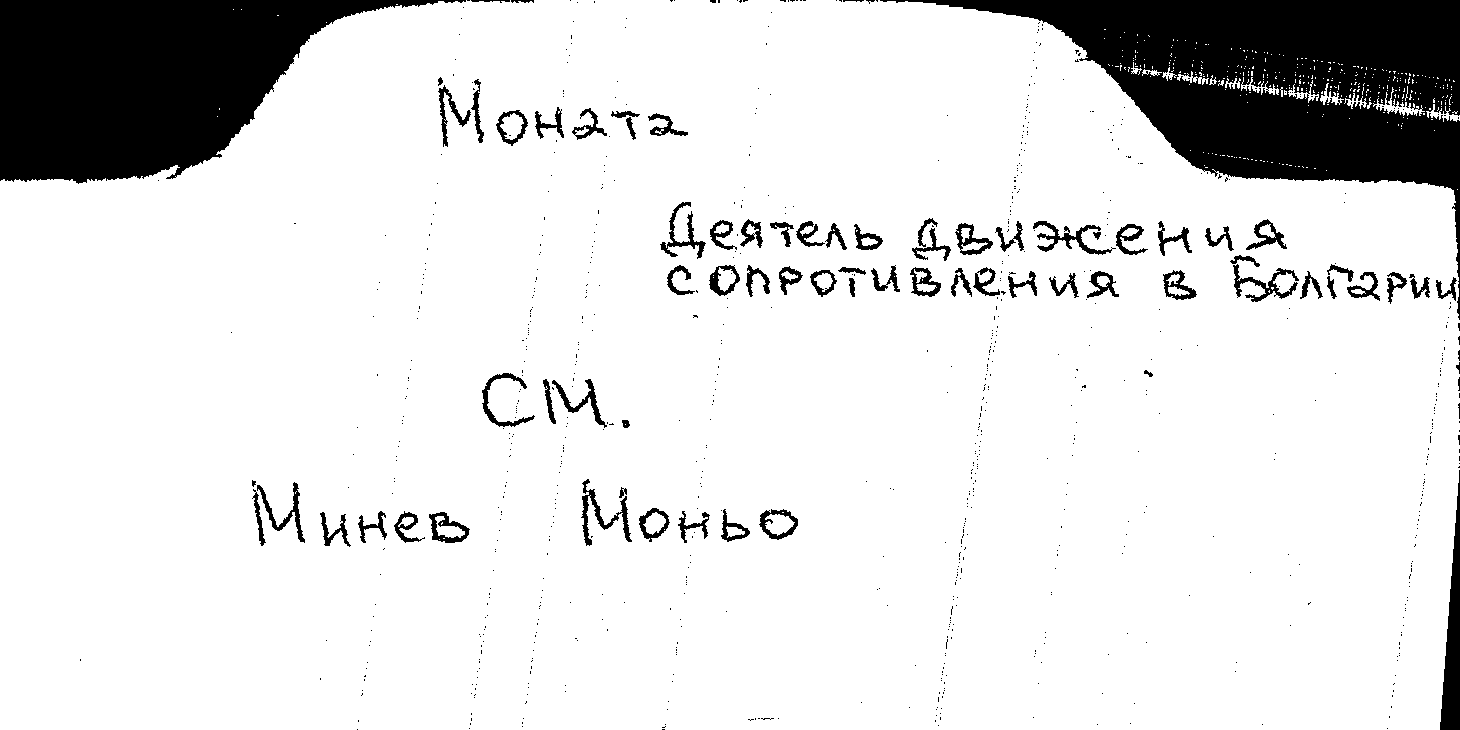 Моната
Деятель движения
сопротивления в Болгарии
см.
Минев Моньо